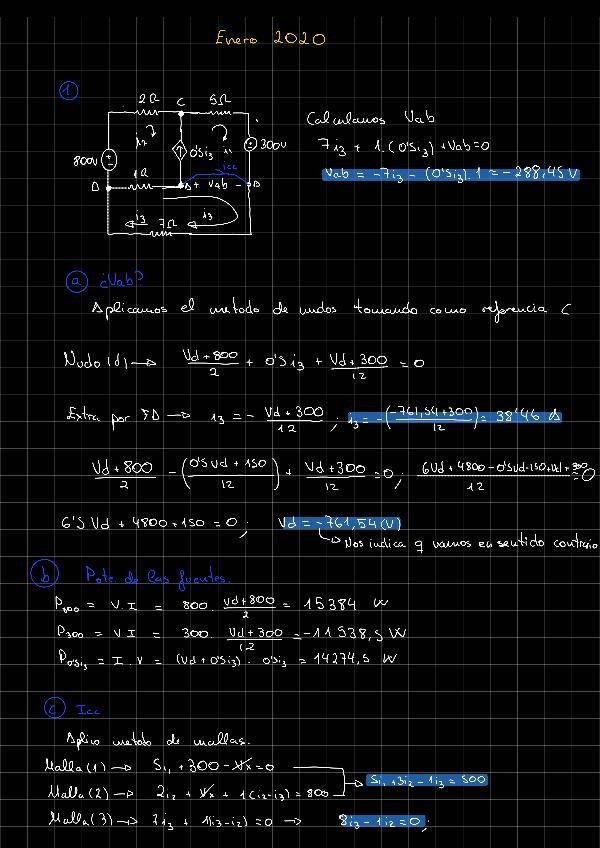 Enero 2020
1
2Ω C 5Ω
i2 i1
800v 0'5i3 300v
1Ω icc
D A + Vab - B
i3 7Ω i3
Calculamos Vab
7i3 + 1·(0'5i3) + Vab = 0
Vab = -7i3 - (0'5i3)·1 = -288,45 V
a ¿Vab?
Aplicamos el metodo de nudos tomando como referencia C
Nudo (d) → (Vd + 800)/2 + 0'5 i3 + (Vd + 300)/12 = 0
Extra por → i3 = - (Vd + 300)/12 ; i3 = -((-761,54+300)/12) = 38'46 A
(Vd + 800)/2 - ((0'5Vd + 150)/12) + (Vd + 300)/12 = 0; (6Vd + 4800 - 0'5Vd - 150 + Vd + 300)/12 = 0
6'5 Vd + 4800 + 150 = 0; Vd = -761,54 (V)
↳ Nos indica q vamos en sentido contrario
b Pote. de las fuentes.
P800 = V·I = 800 · (Vd+800)/2 = 15384 W
P300 = V I = 300 · (Vd+300)/12 = -11538,5 W
P0'5i3 = I · V = (Vd + 0'5i3) · 0'5i3 = 14274,5 W
c Icc
Aplico metodo de mallas.
Malla (1) → 5i1 + 300 - Vx = 0
5i1 + 3i2 - 1i3 = 500
Malla (2) → 2i2 + Vx + 1(i2-i3) = 800
Malla (3) → 7i3 + 1(i3-i2) = 0 → 8i3 - 1i2 = 0;